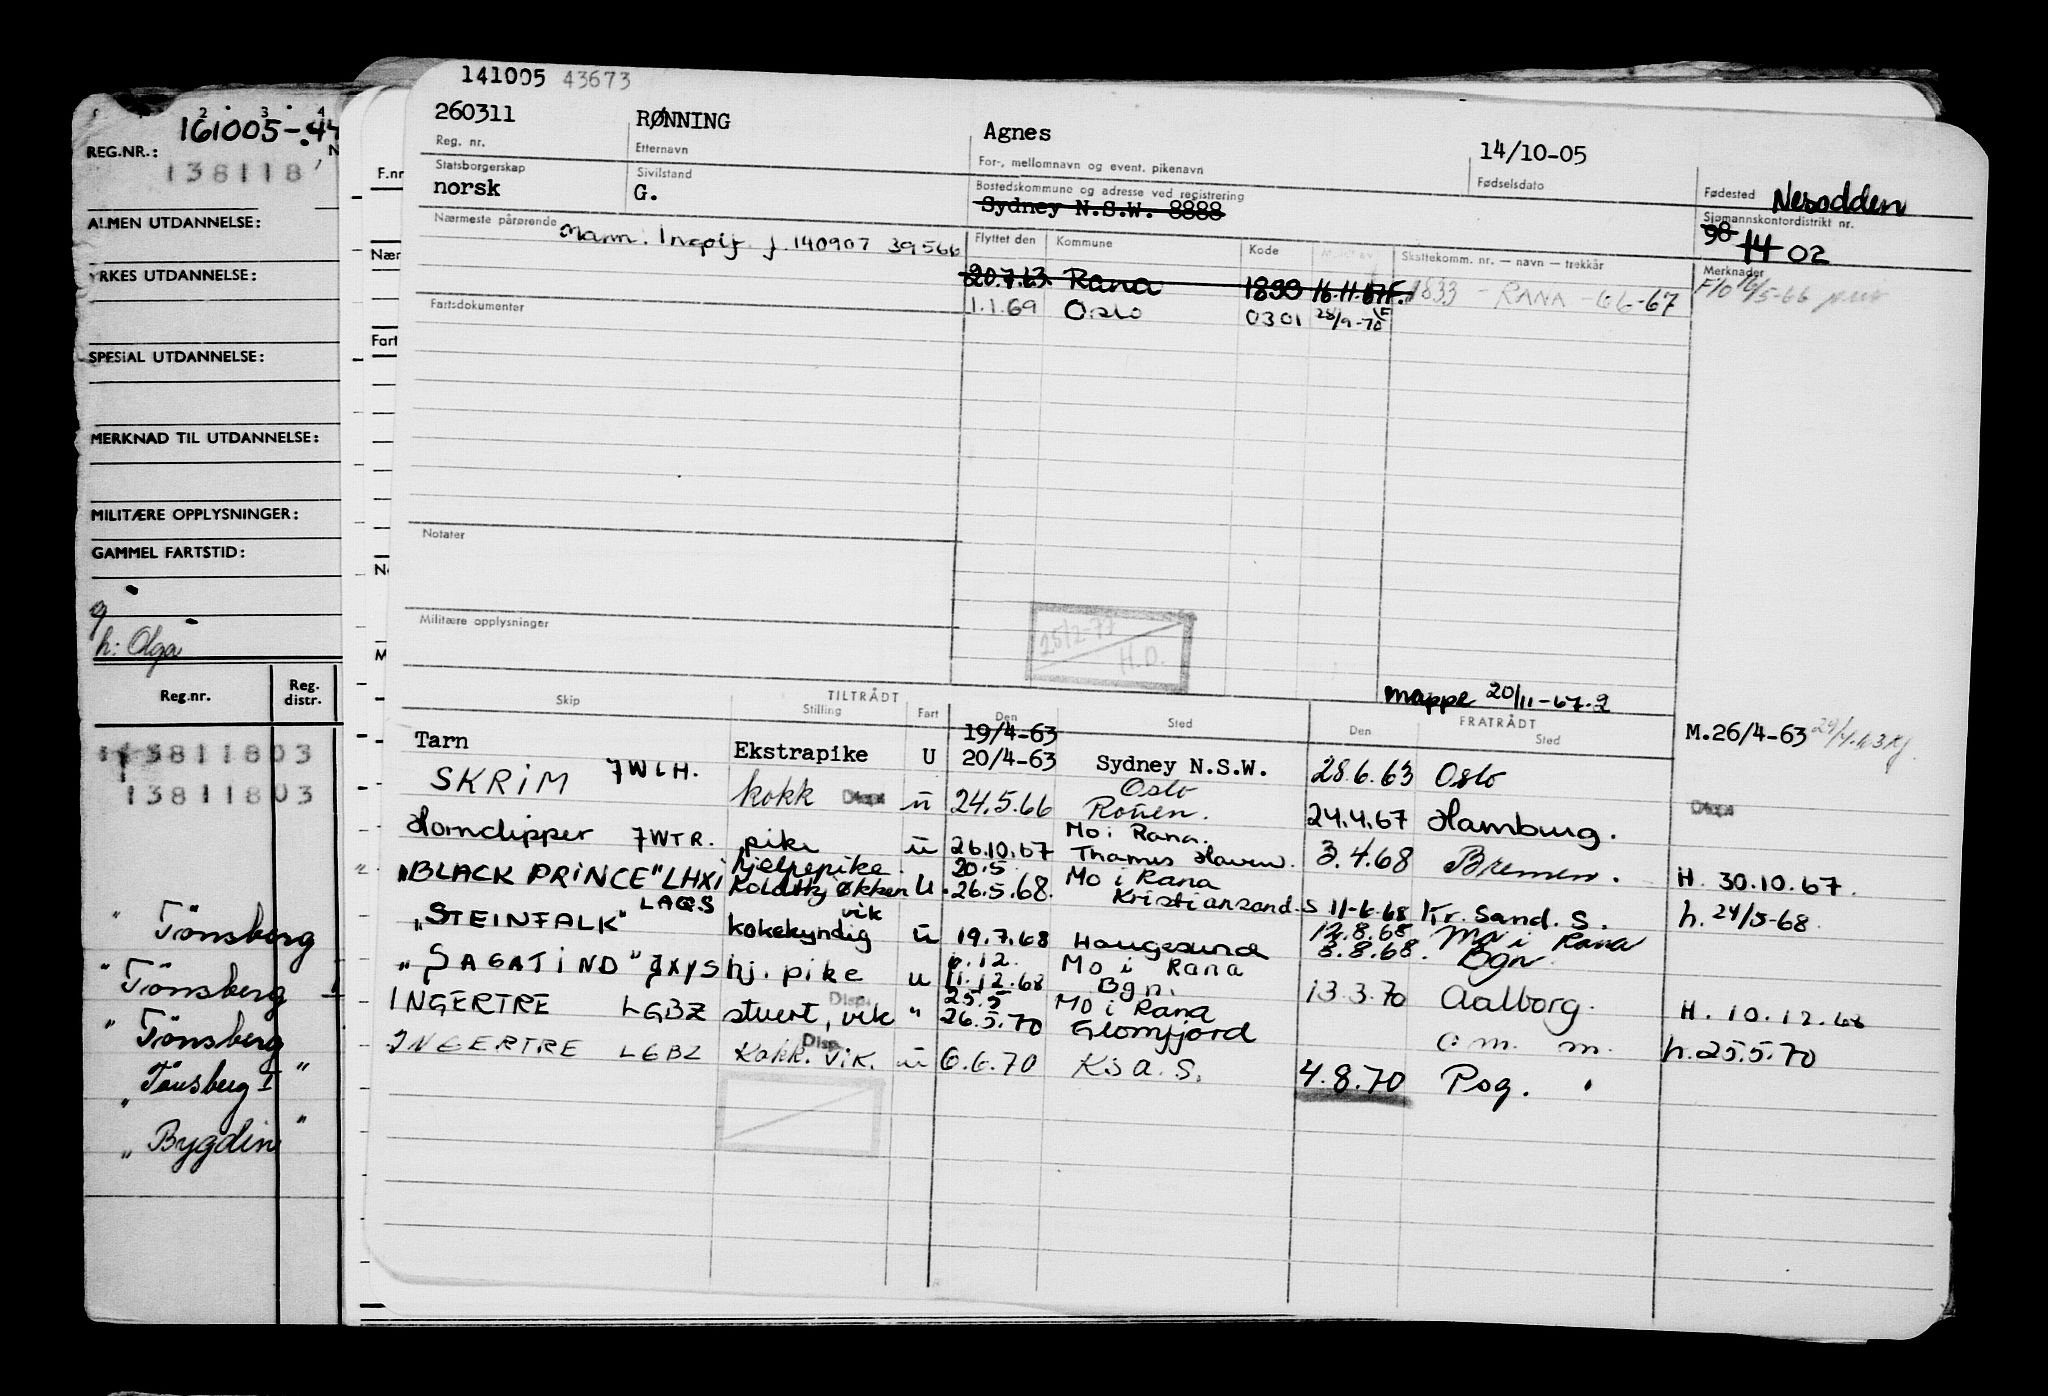 141005 43673
260311 RØNNING Agnes 14/10-05
Reg. nr. Etternavn For-, mellomnavn og event. pikenavn Fødselsdato Fødested Nesodden
Statsborgerskap Sivilstand Bostedskommune og adresse ved registrering Sjømannskontordistrikt nr.
norsk G. Sydney N.S.W. 8888 98 14 02
Nærmeste pårørende Mann. Ingolf f. 140907 39566 Flyttet den Kommune Kode Skattekomm. nr. — navn — trekkår Merknader
20.7.63 Rana 1833 16.11.67F. 1833 - RANA - 66-67 F/O 16/5-66
Fartsdokumenter 1.1.69 Oslo 0301 28/9-70
Notater
Militære opplysninger
25/2-77
H.D.
mappe 20/11-67.
Skip TILTRÅDT FRATRÅDT
Stilling Fart Den Sted Den Sted
19/4-63
Tarn Ekstrapike U 20/4-63 Sydney N.S.W. 28.6.63 Oslo M.26/4-63
Oslo
SKRIM 7WLH. kokk Disp. u 24.5.66 Rouen. 24.4.67 Hamburg. Disp.
Mo i Rana.
Hornclipper 7WTR. pike u 26.10.67 Thames Haven. 3.4.68 Bremen. H. 30.10.67.
hjelpepike 20.5 Mo i Rana
"BLACK PRINCE" LHXI Koldtkjøkken U. 26.5.68. Kristiansand.S 11-6-68 Kr. Sand. S. h. 24/5-68
vik 12.8.68 Mo i Rana
"STEINFALK" LAQS kokekyndig u 19.7.68 Haugesund 8.8.68. Bgn.
12. Mo i Rana
"SAGATIND" JXYS hj. pike u 11.12.68 Bgn. 13.3.70 Aalborg. H. 10.12.68
Disp. 25.5 Mo i Rana
INGERTRE LGBZ stuert, vik " 26.5.70 Glomfjord a. m. m. h.25.5.70
Disp.
INGERTRE LGBZ Kokk. vik. u 6.6.70 Kr.s a. S. 4.8.70 Psg.
REG.NR.: 161005-44
138118
ALMEN UTDANNELSE:
YRKES UTDANNELSE:
SPESIAL UTDANNELSE:
MERKNAD TIL UTDANNELSE:
MILITÆRE OPPLYSNINGER:
GAMMEL FARTSTID:
g
h: Olga
Reg.nr. Reg. distr.
13811803
13811803
" Tönsberg
" Tönsberg I
" Tönsberg "
" Tönsberg I
" Bygdin "
F.nr
Nær
Fart
N
M